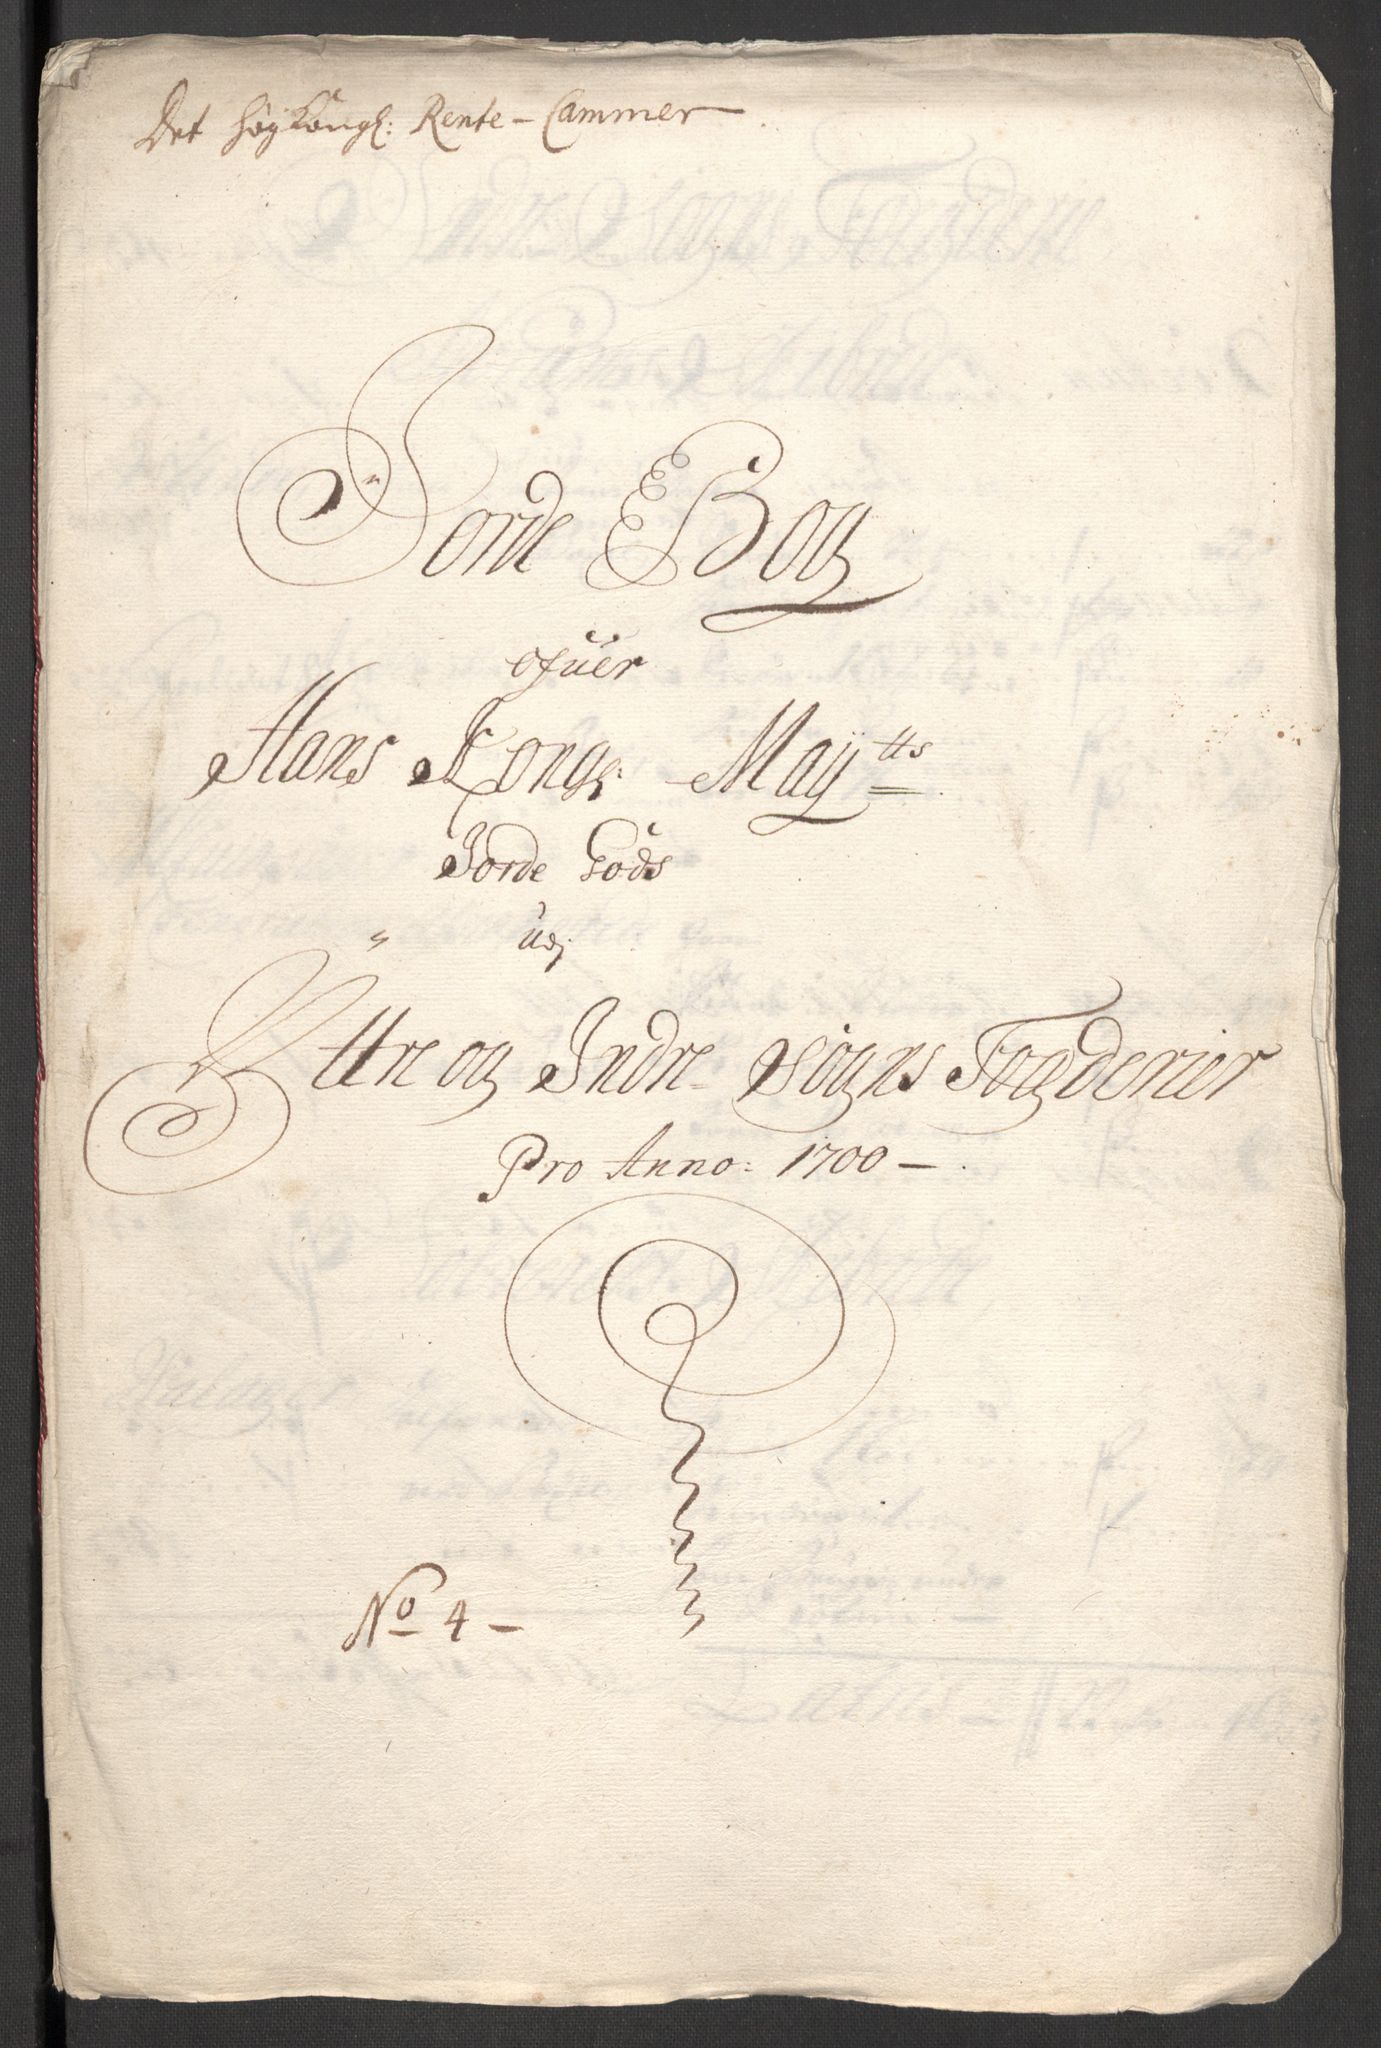 Det høyKongl: Rente-Cammer
Jorde Bog
ofuer
Hans Kongl: Mayᵗᵗˢ
Jorde Gods
udj
Yttre og Indre Sogns Fogderier
Pro Anno: 1700 -
No 4 -